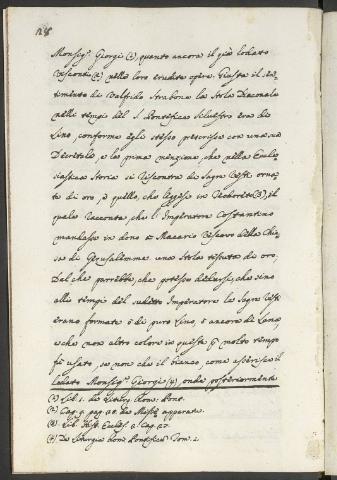 128
Monsig.r Giorgi (1), quanto ancora il già lodato
Visconti (2) nelle loro erudite opere. Giusta il sen-
timento di Valfrido Strabone la Stola Diaconale
nelli tempi del S. Pontefice Silvestro era di
Lino, conforme egli stesso prescrisse con una sua
Decretale, e la prima menzione, che nella Eccle-
siastica Storia si riscontra di Sagra Veste orna-
ta di oro, è quello, che leggesi in Teodoreto (3), il
quale racconta, che l'Imperatore Costantino
mandasse in dono a Macario Vescovo della Chie-
sa di Gerusalemme una Stola tessuta di oro.
Dal che parrebbe, che potesse dedursi, che sino
alli tempi del sudetto Imperatore le Sagre Vesti
erano formate ò di puro Lino, ò ancora di Lana,
e che non altro colore in queste p molto tempo
fù usato, se non che il bianco, come asserisce il
lodato Monsig.r Giorgi (4), onde posteriormente
(1) Lib. 1. de Liturg. Rom. Pont.
(2) Cap. 9. pag. 28. de Missæ apparatu.
(3) Lib. Hist. Eccles. 2. Cap. 27.
(4) De Liturgia Rom. Pontificis Tom. 1.